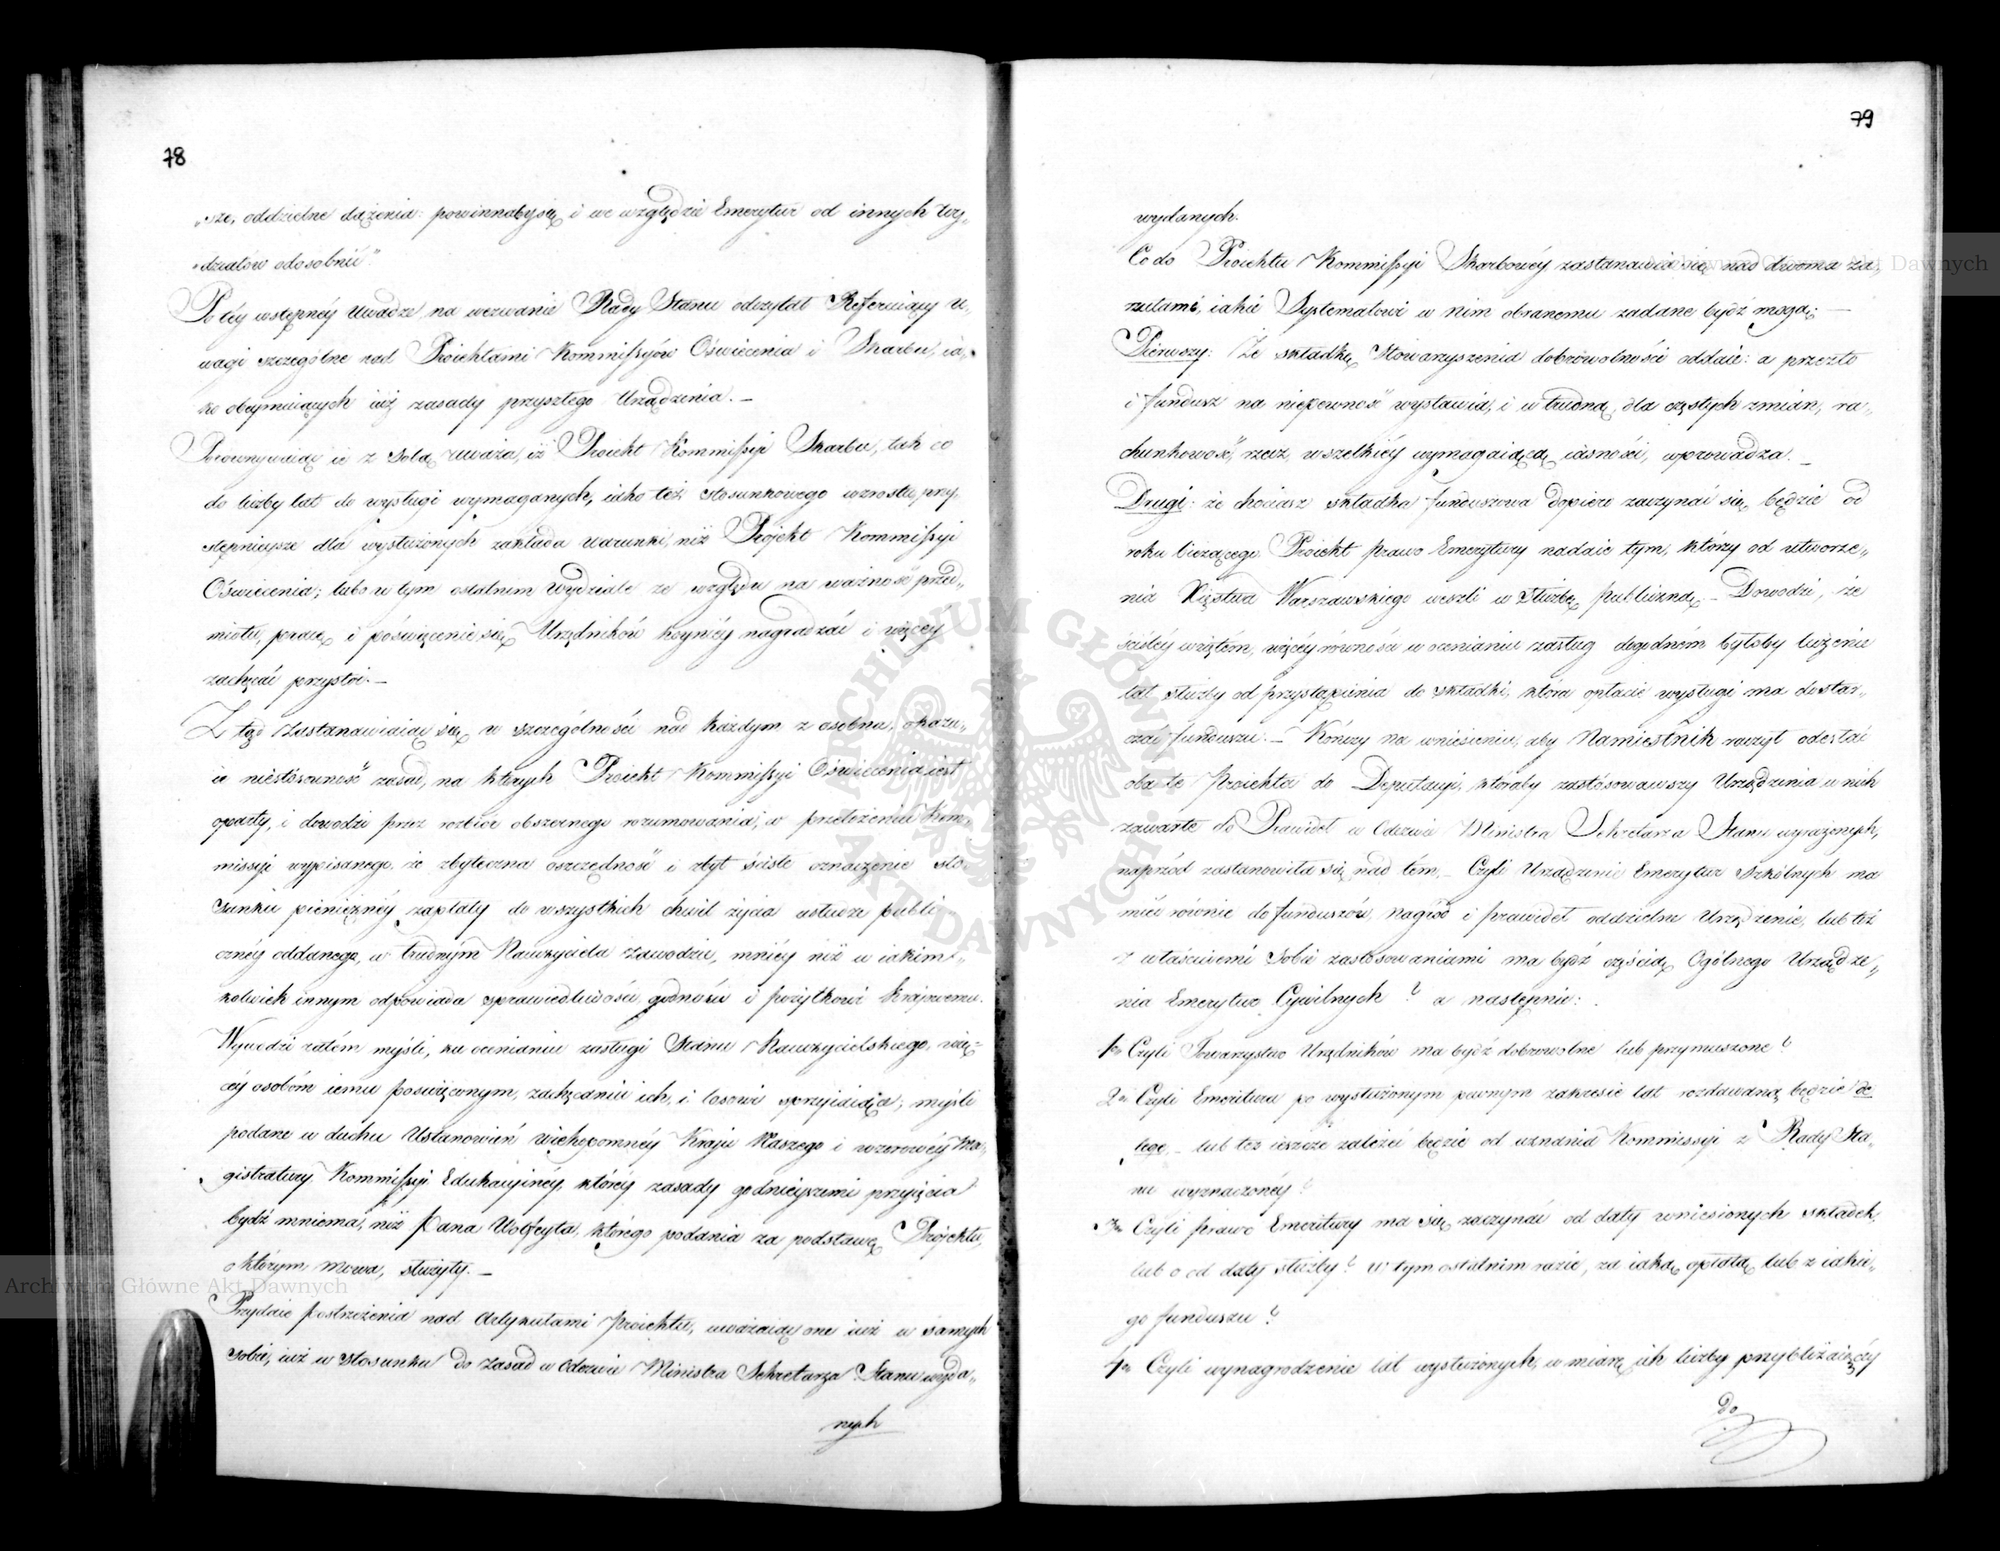 78
„sze, oddzielne dążenia: powinnaby się i we względzie Emerytur od innych Wy„
„działów odosobnić."
Po téy wstępnéy Uwadze, na wezwanie Rady Stanu odczytał Referuiący U„
wagi szczególne nad Proiektami Kommissyów Oświecenia i Skarbu, ia„
ko obeymuiących iuż zasady przyszłego Urządzenia. _
Porównywaiąc ie z Sobą uważa, iż Proiekt Kommissyi Skarbu, tak co
do liczby lat do wysługi wymaganych, iako też stosunkowego wzrostu, przy„
stępnieysze dla wysłużonych zakłada warunki, niż Projekt Kommissyi
Oświecenia; lubo w tym ostatnim Wydziale ze względu na ważność przed„
miotu, pracę i poświęcenie się Urzędników hoyniéy nagradzać i więcéy
zachęcać przystoi. _
Z tąd zastanawiaiąc się w szczególności nad każdym z osobna, okazu„
ie niestósowność zasad, na których Proiekt Kommissyi Oświecenia iest
oparty, i dowodzi przez rozbior obszernego rozumowania, w przełożeniu Kom„
missyi wypisanego, że zbyteczna oszczędność i zbyt ścisłe oznaczenie sto„
sunku pieniężnéy zapłaty do wszystkich chwil życia usłudze publi„
cznéy oddanego, w trudnym Nauczyciela zawodzie, mniéy niż w iakim„
kolwiek innym odpowiada sprawiedliwości, godności i pożytkowi kraiowemu.
Wywodzi zatém myśli, ku ocenianiu zasługi Stanu Nauczycielskiego, wię„
céy osobóm iemu poswięconym, zachęcaniu ich, i losowi sprzyiaiące; myśli
podane w duchu Ustanowień wiekopomnéy Kraju Naszego i wzorowéy Ma„
gistratury Kommissyi Edukacyinéy, któréy zasady godnieyszemi przyięcia
bydź mniema, niż Pana Wolfeyta, którego podania za podstawę Projektu,
o którym mowa, służyły. _
Przydaie postrzeżenia nad Artykułami Proiektu, uważaiąc one iuż w samych
sobie, iuż w stosunku do zasad w Odezwie Ministra Sekretarza Stanu wyda„
nych
79
wydanych.
Co do Proiektu Kommissyi Skarbowéy zastanawia się nad dwoma za„
rzutami, iakie Systematowi w nim obranemu zadane bydź mogą: _
Pierwszy: Że składkę Stowarzyszenia dobrowolności oddaie: a przezto
i fundusz na niepewność wystawia, i w trudną, dla częstych zmian, ra„
chunkowość, rzecz, wszelkiéy wymagaiącą iasności, wprowadza. _
Drugi: że chociaż składka funduszowa dopiero zaczynać się będzie od
roku bieżącego, Proiekt prawo Emerytury nadaie tym, którzy od utworze„
nia Xięstwa Warszawskiego weszli w służbę publiczną _ Dowodzi, że
ściśléy wziętem, więcéy równości w ocenianiu zasług dogodném byłoby liczenie
lat służby od przystąpienia do składki, która opłacie wysługi ma dostar„
czać funduszu. _ Kończy na wniesieniu, aby Namiestnik raczył odesłać
oba te Proiekta do Deputacyi, któraby zastósowawszy Urządzenia w nich
zawarte do Prawideł w Odezwie Ministra Sekretarza Stanu wyrażonych,
naprzód zastanowiła się nad tém, _ Czyli Urządzenie Emerytur Szkólnych ma
mieć równie do funduszów, nagród i prawideł oddzielne Urządzenie, lub też
z właściwemi Sobie zastosowaniami ma bydź częścią Ogólnego Urządze„
nia Emerytur Cywilnych? a następnie:
1o Czyli Towarzystwo Urzędników ma bydź dobrowolne lub przymuszone?
2o Czyli Emeritura po wysłużonym pewnym zakresie lat rozdawaną będzie de
lege, _ lub też ieszcze zależeć będzie od uznania Kommissyi z Rady Sta„
nu wyznaczonéy?
3o Czyli prawo Emeritury ma się zaczynać od daty wniesionych składek,
lub o od daty służby? w tym ostatnim razie, za iaką opłatą, lub z iakie„
go funduszu?
4o Czyli wynagrodzenie lat wysłużonych, w miarę ich liczby przybliżaiącéy
do